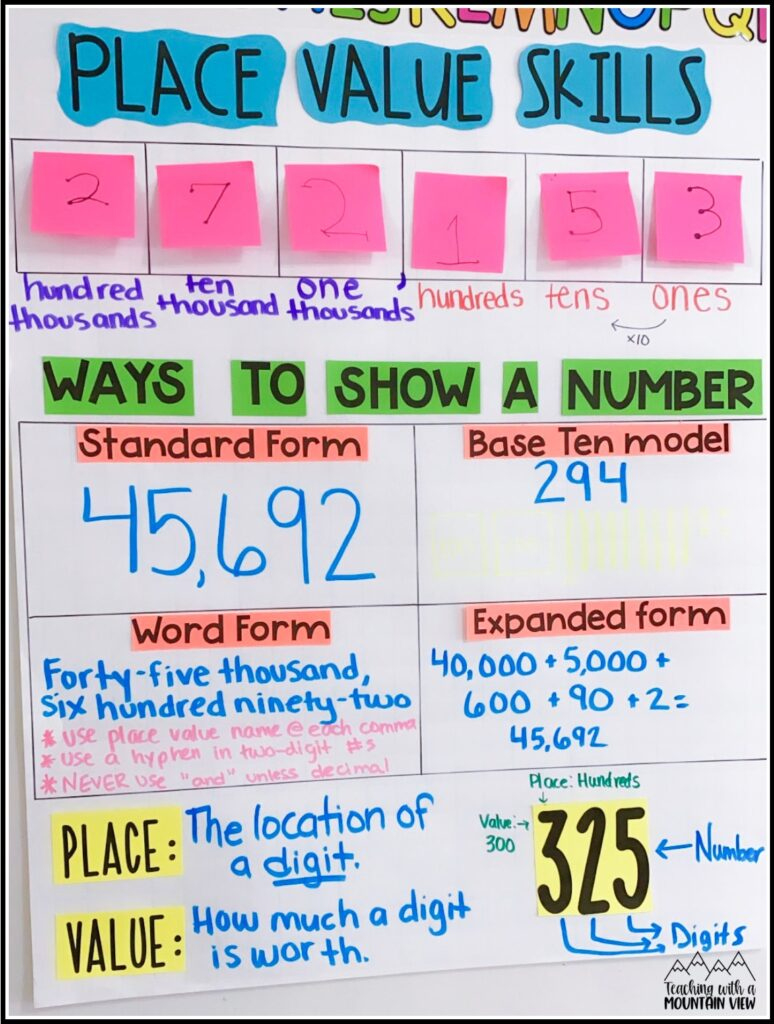 PLACE VALUE SKILLS
2 7 2 1 5 3
hundred thousands
ten thousand
one thousands
,
hundreds
tens
ones
x10
WAYS TO SHOW A NUMBER
Standard Form
45,692
Base Ten model
294
Word Form
Forty-five thousand,
six hundred ninety-two
* use place value name @ each comma
* Use a hyphen in two-digit #s
* NEVER use "and" unless decimal
Expanded form
40,000 + 5,000 +
600 + 90 + 2 =
45,692
PLACE: The location of
a digit.
VALUE: How much a digit
is worth.
Place: Hundreds
Value:
300
325
Number
Digits
Teaching with a
MOUNTAIN VIEW